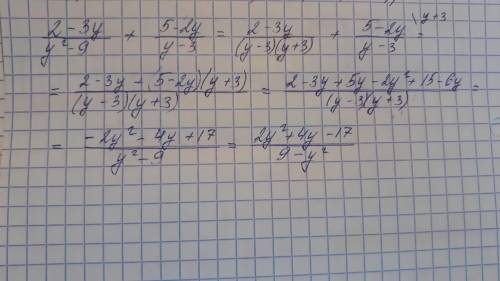 (2-3y)/(y²-9) + (5-2y)/(y-3) = (2-3y)/((y-3)(y+3)) + (5-2y)/(y-3) \y+3 =
= (2-3y+(5-2y)(y+3))/((y-3)(y+3)) = (2-3y+5y-2y²+15-6y)/((y-3)(y+3)) =
= (-2y²-4y+17)/(y²-9) = (2y²+4y-17)/(9-y²)